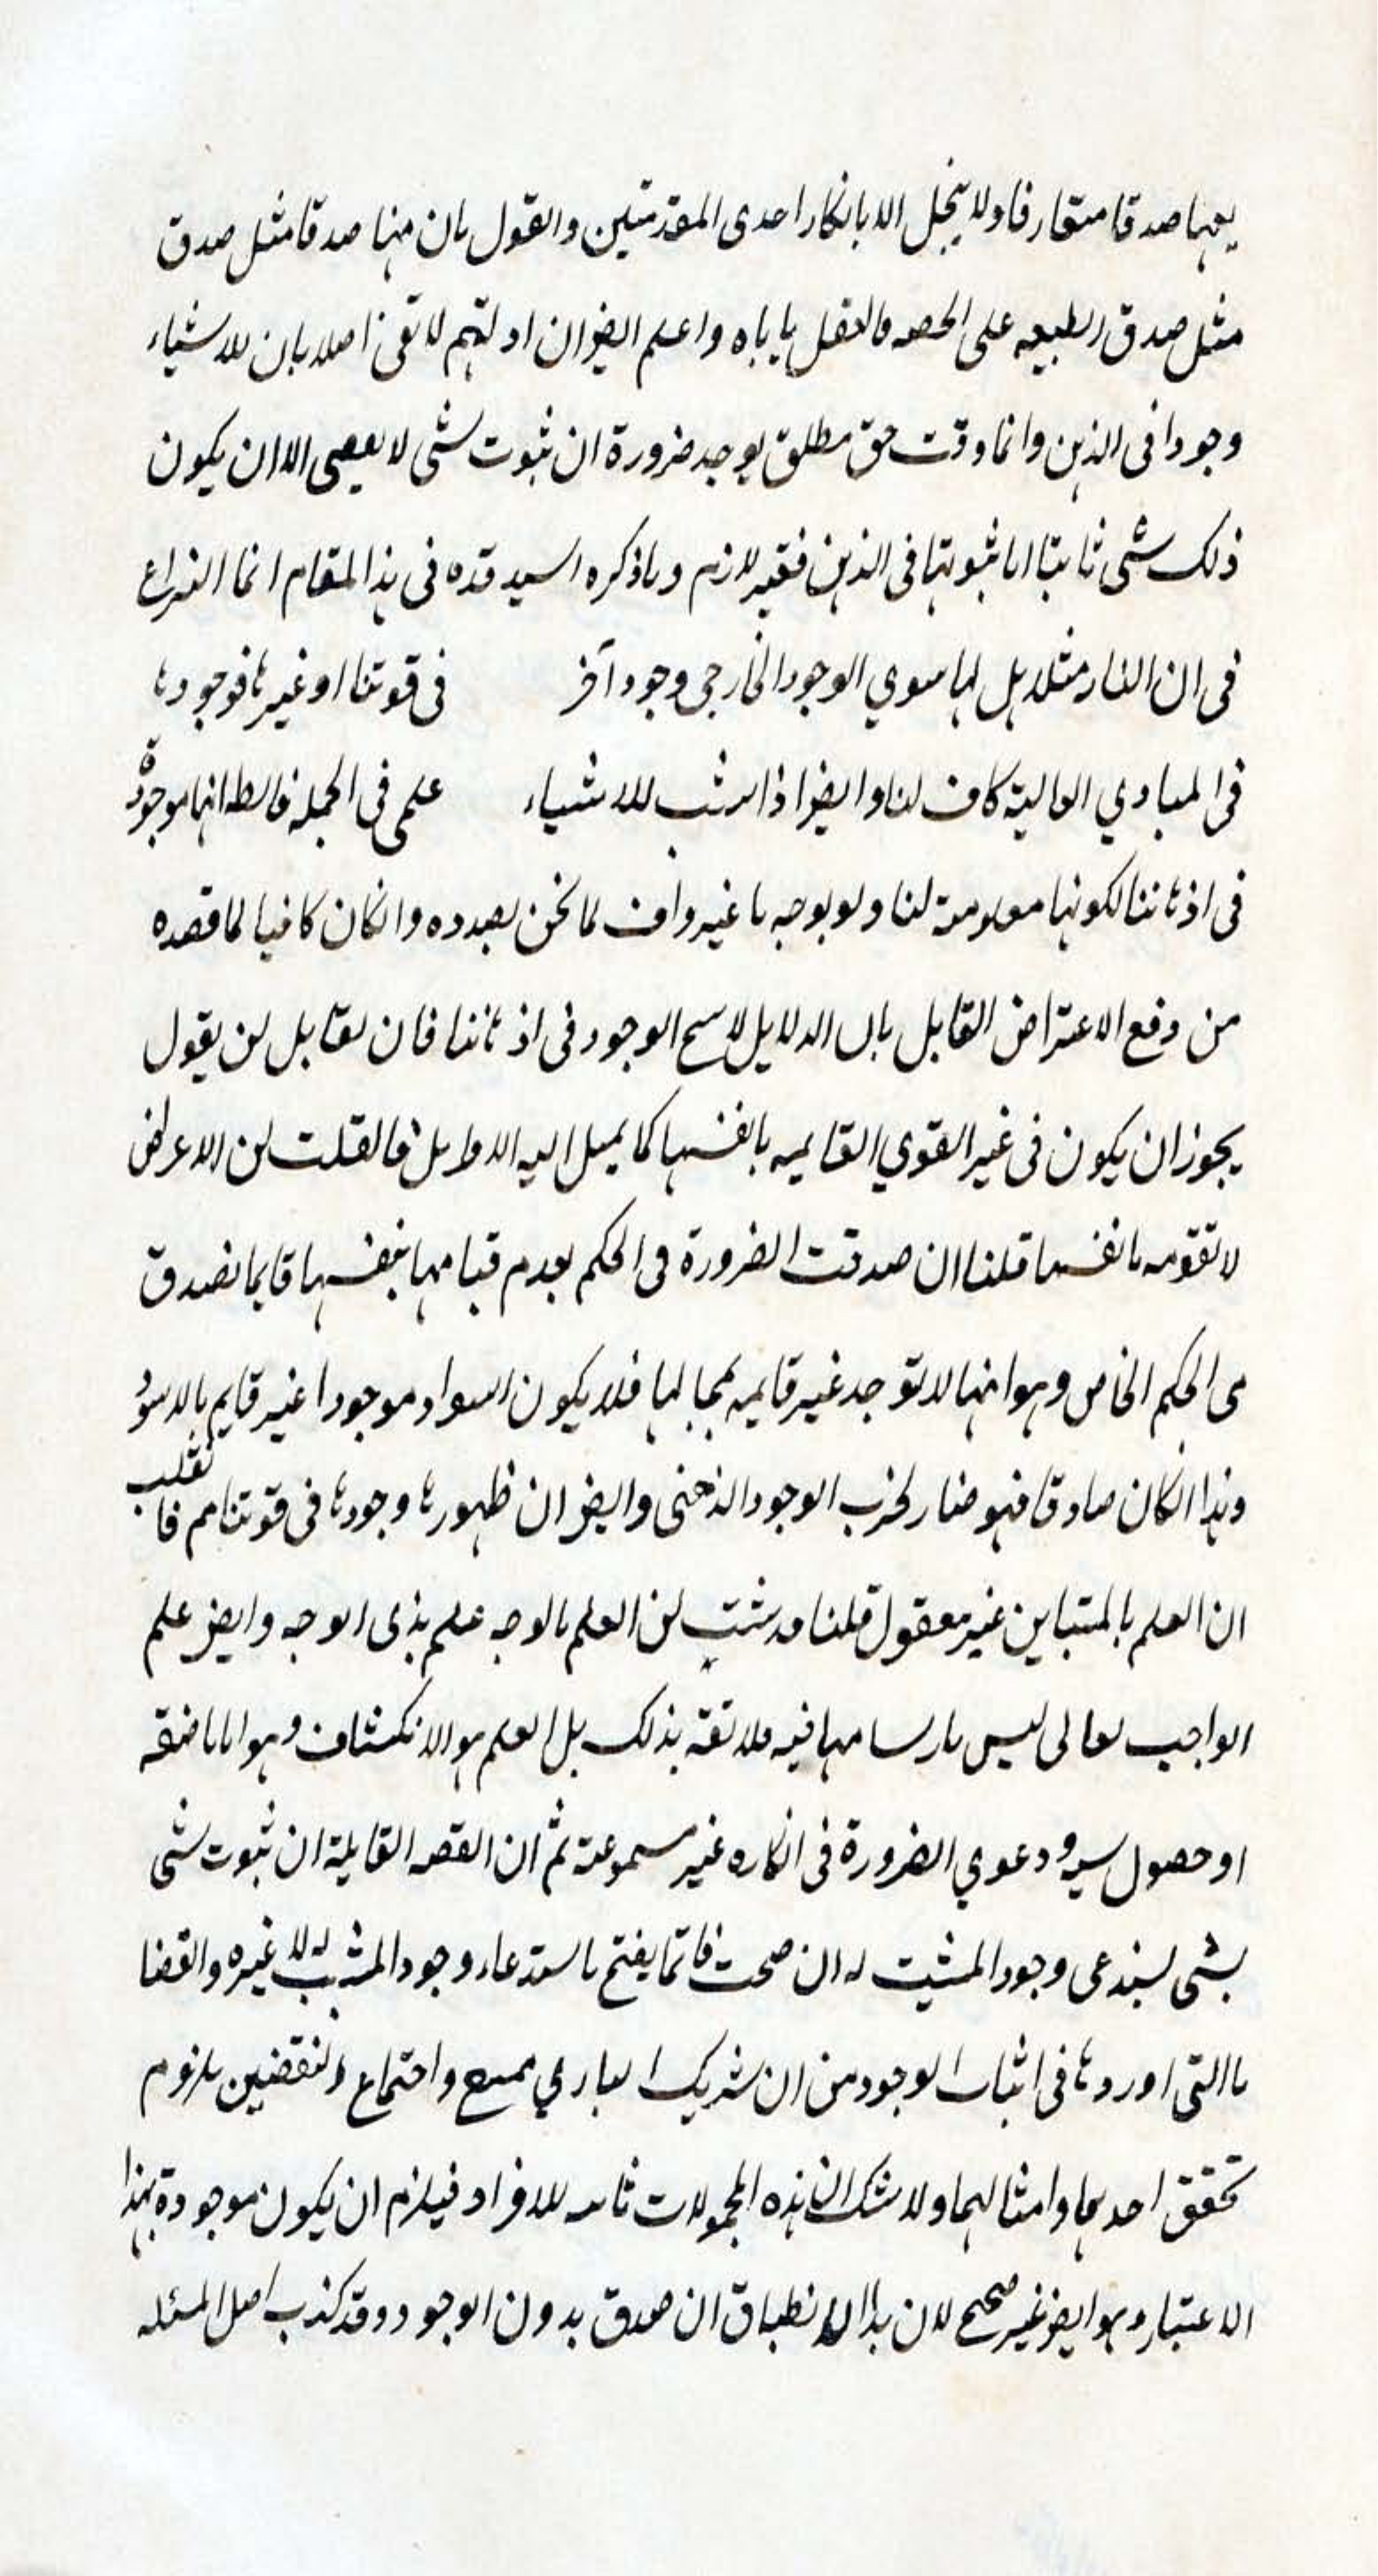 يعها صدقا متعارفا ولا ينحل الا بانكار احدى المقدمتين والقول بان منها صدقا مثل صدق
مثل صدق الطبيعه على الحصه فالعقل ياباه واعلم ايضا ان ادلتهم لا تفى اصلا بان للاشياء
وجودا فى الذهن وانما وقت حق مطلق يوجد ضرورة ان ثبوت شى لا يعصى الا ان يكون
ذلك شى ثابتا اما ثبوتها فى الذهن فغير لازم وما ذكره السيد قده فى هذا المقام انما النزاع
فى ان النار مثلا هل لها سوي الوجود الخارجى وجود آخر فى قوتنا او غيرها فوجودها
فى المبادي العالية كاف لنا وايضا اذا ثبت للاشياء علمى فى الجمله فالط انها موجودة
فى اذهاننا لكونها معلومة لنا ولو بوجه ما غير واف لما نحن بصدده وان كان كافيا لما قصده
من دفع الاعتراض القايل بان الدلايل لا تنتج الوجود فى اذهاننا فان لقايل ان يقول
يجوز ان يكون فى غير القوي القايمه بانفسها كما يميل اليه الاوايل فان قلت ان الاعراض
لا تقوم بانفسها قلنا ان صدقت الضرورة فى الحكم بعدم قيامها بنفسها قايما تصدق
فى الحكم الخاص وهو انها لا توجد غير قايمه بمحالها فلا يكون السواد موجودا غير قايم بالاسود
وهذا ان كان صادقا فهو ضار لحزب الوجود الذهنى وايض ان ظهورها وجودها فى قوتنا مم فانقلب
ان العلم بالمتباين غير معقول قلنا قد ثبت ان العلم بالوجه علم بذى الوجه وايض علم
الواجب تعالى ليس بارتسامها فيه فلا تفه بذلك بل العلم هو الانكشاف وهو اما باضافه
او حصول سيه ودعوي الضرورة فى انكاره غير مسموعة ثم ان القصه القايلة ان ثبوت شى
بشى يستدعى وجود المثبت له ان صحت فانما يفتح باستدعاء وجود المثبت له لا غيره والقضا
يا التى اوردها فى اثبات الوجود من ان شريك الباري ممتنع واجتماع النقضين يلزوم
تحقق احدهما وامثالهما ولا شك ان هذه المحمولات ثابته للافراد فيلزم ان يكون موجودة بهذا
الاعتبار وهو ايض غير صحيح لان هذا الانطباق ان صدق بدون الوجود وقد كذب اصل المسئله